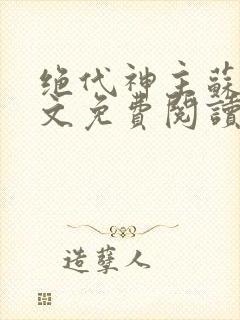 绝代神主蘇
文免費閱讀
造孽人